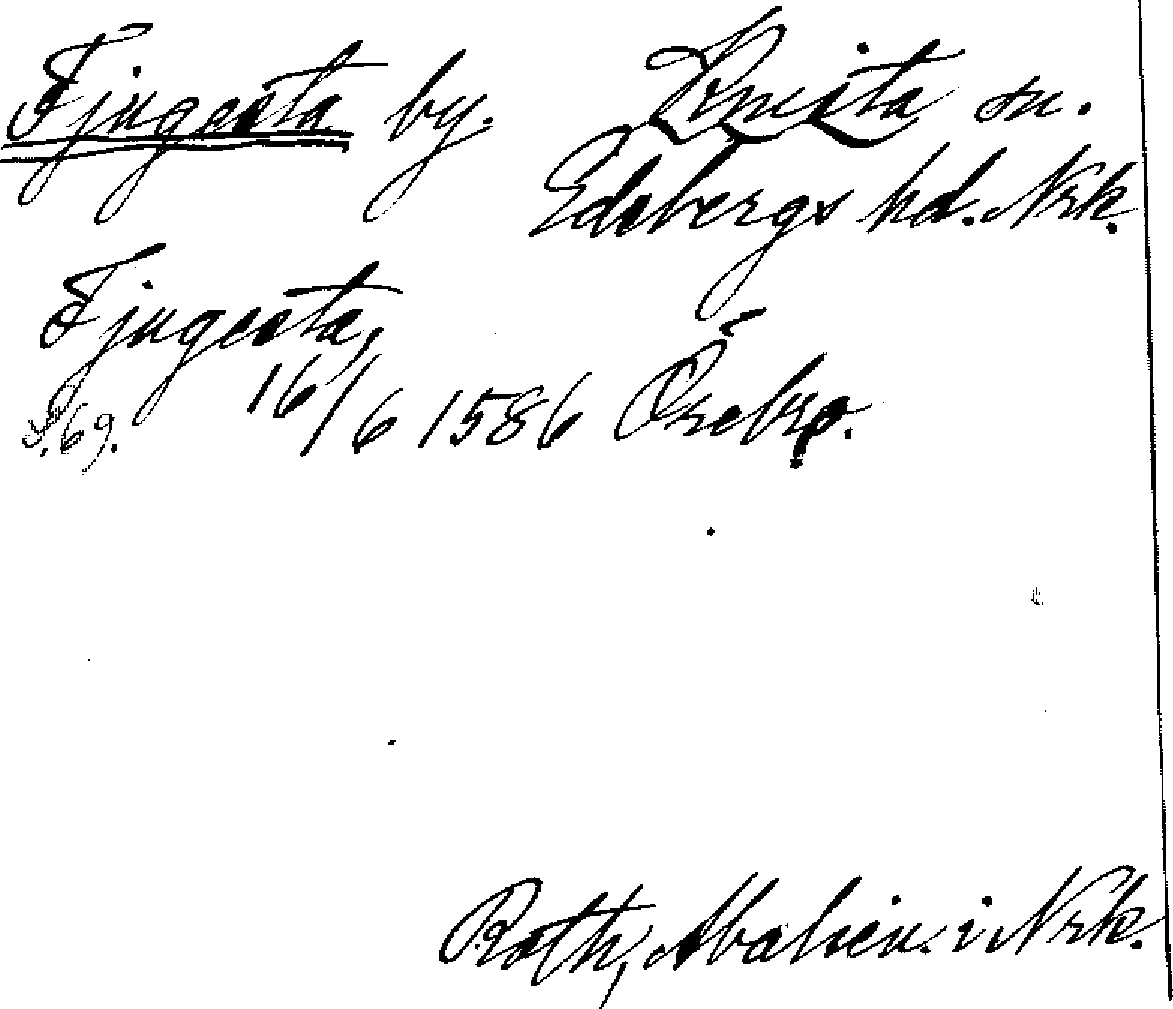 Fjugesta by. Knista sn.
Edsbergs hd. Nrk.
Fjugesta,
16/6 1586 Örebro.
s. 69.
Roth, Abalien. i Nrk.